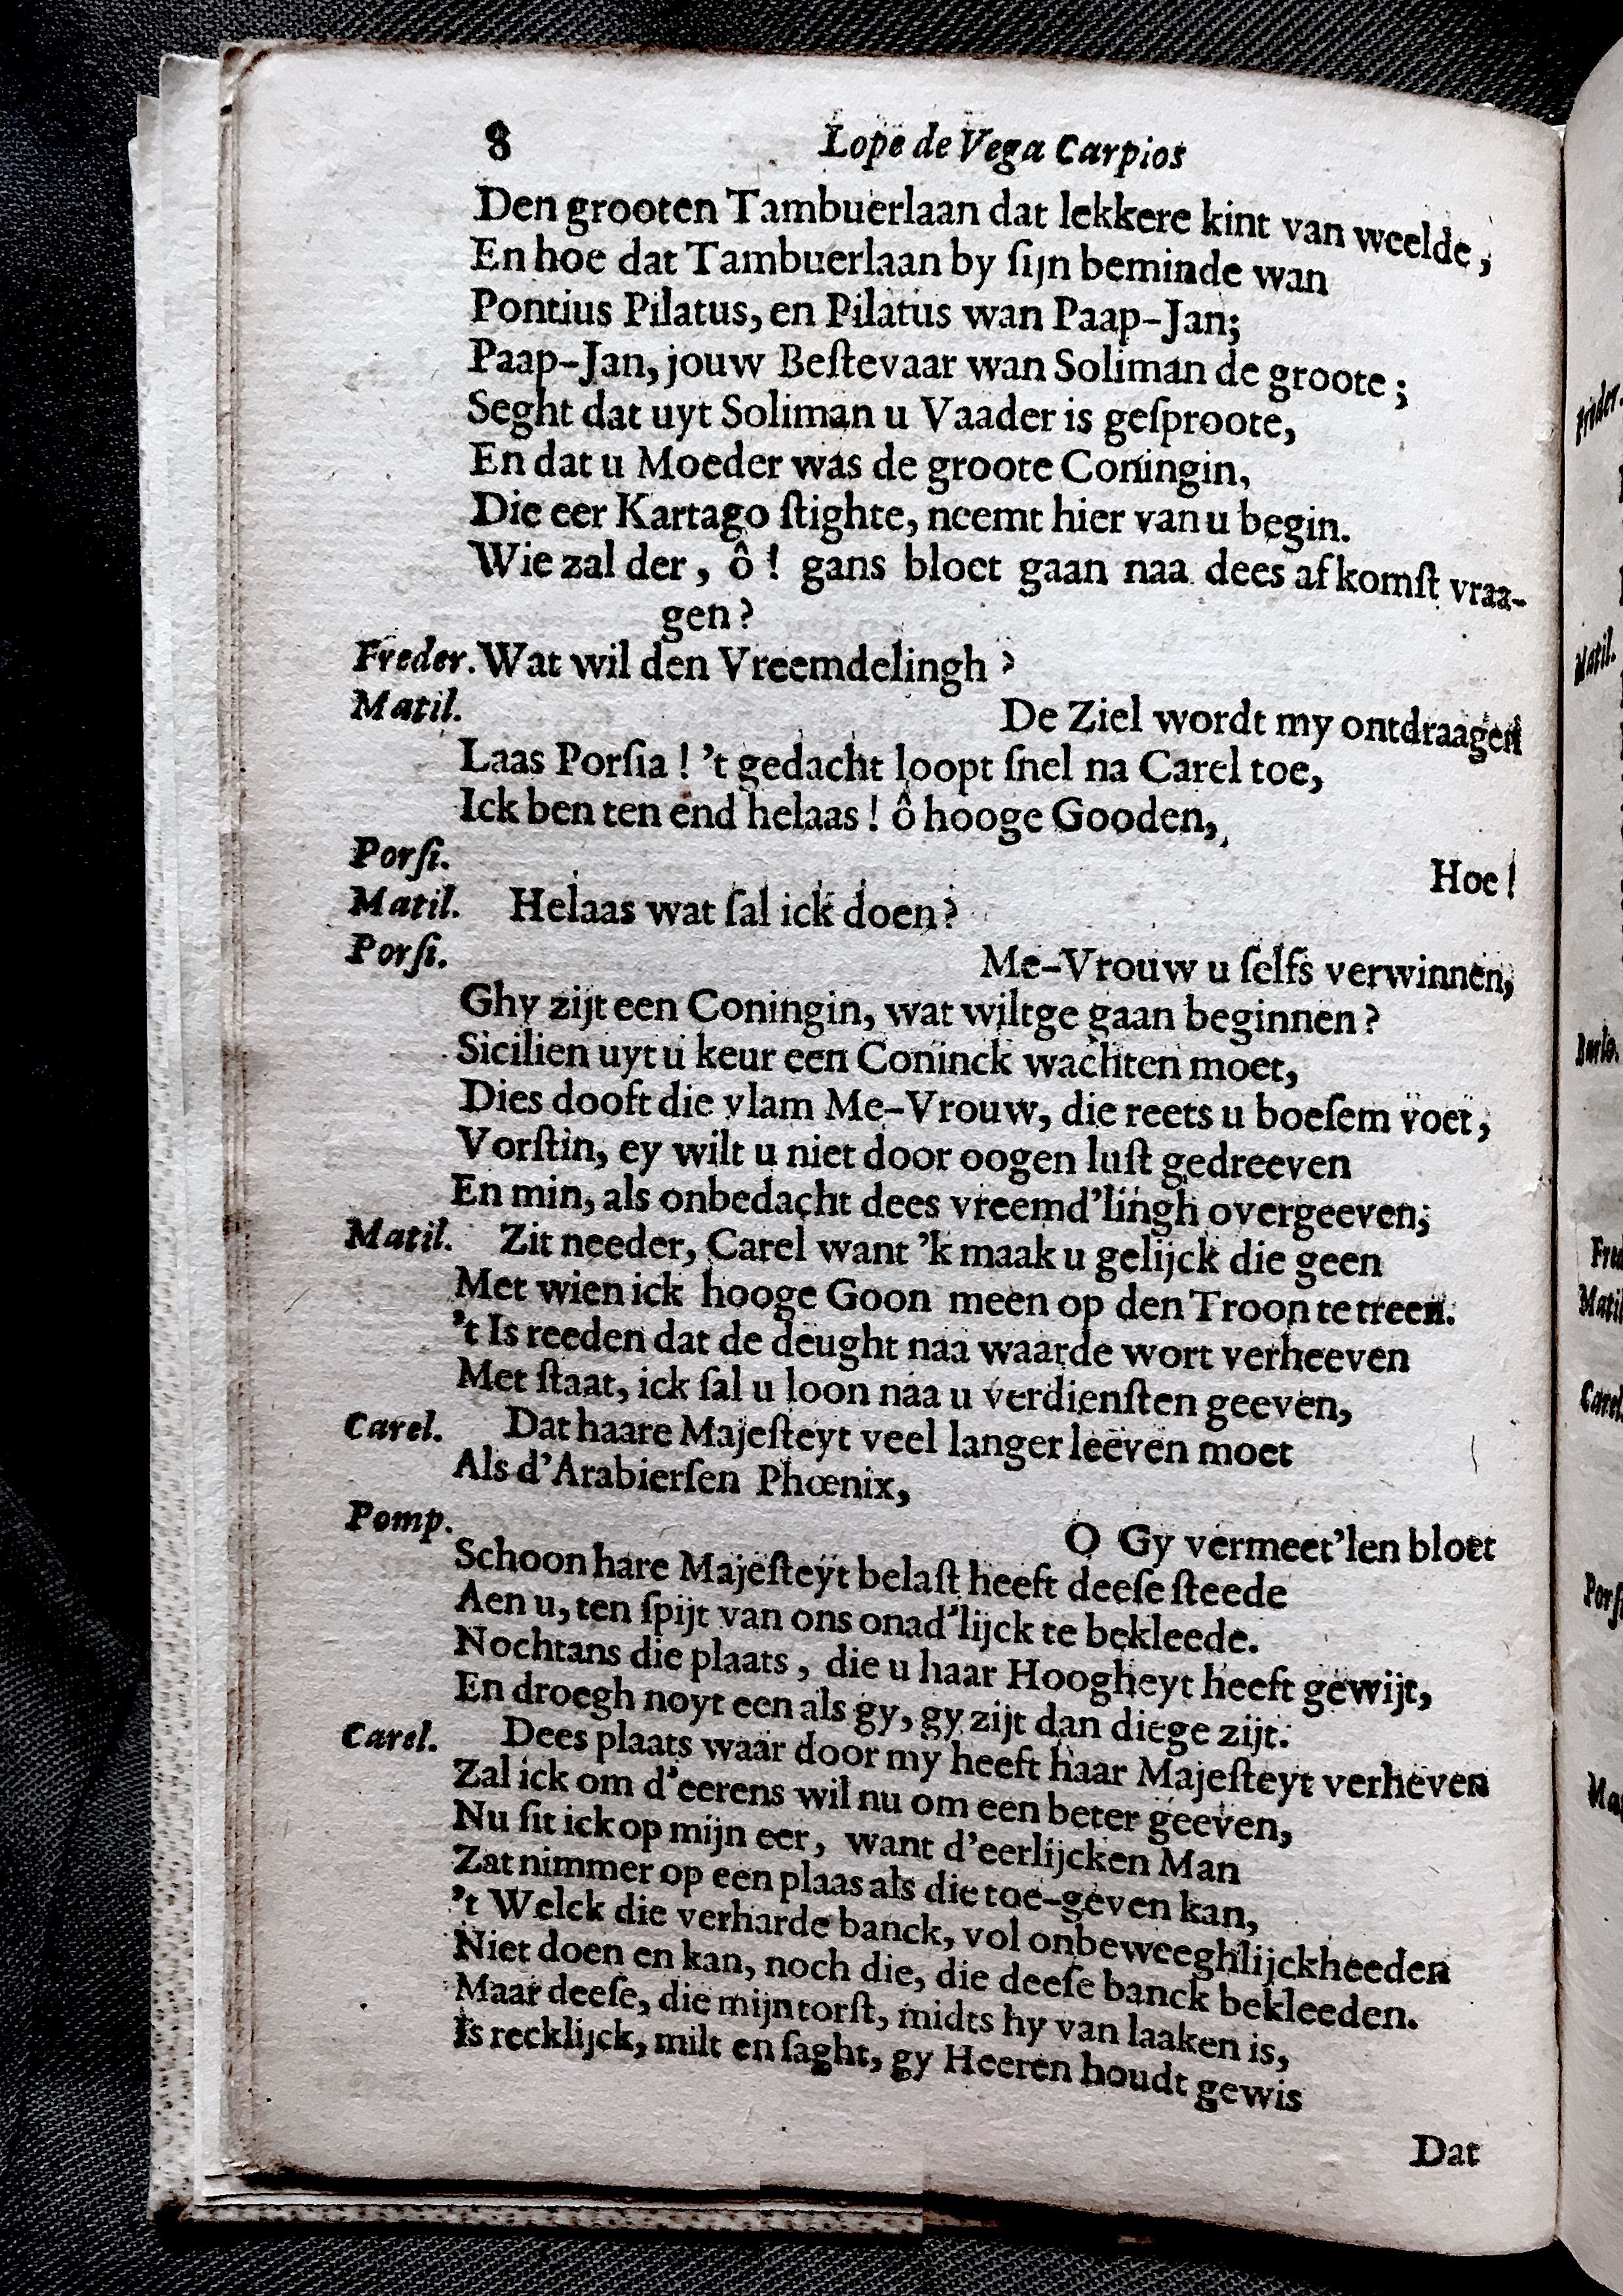 8 Lope de Vega Carpios
Den grooten Tambuerlaan dat lekkere kint van weelde,
En hoe dat Tambuerlaan by ſijn beminde wan
Pontius Pilatus, en Pilatus wan Paap-Jan;
Paap-Jan, jouw Beſtevaar wan Soliman de groote;
Seght dat uyt Soliman u Vaader is geſproote,
En dat u Moeder was de groote Coningin,
Die eer Kartago ſtighte, neemt hier van u begin.
Wie zal der, ô! gans bloet gaan naa dees afkomſt vraa-
gen?
Freder. Wat wil den Vreemdelingh?
Matil. De Ziel wordt my ontdraagen
Laas Porſia! 't gedacht loopt ſnel na Carel toe,
Ick ben ten end helaas! ô hooge Gooden,
Porſi. Hoe!
Matil. Helaas wat ſal ick doen?
Porſi. Me-Vrouw u ſelfs verwinnen,
Ghy zijt een Coningin, wat wiltge gaan beginnen?
Sicilien uyt u keur een Coninck wachten moet,
Dies dooft die vlam Me-Vrouw, die reets u boeſem voet,
Vorſtin, ey wilt u niet door oogen luſt gedreeven
En min, als onbedacht dees vreemd'lingh overgeeven;
Matil. Zit needer, Carel want 'k maak u gelijck die geen
Met wien ick hooge Goon meen op den Troon te treen.
't Is reeden dat de deught naa waarde wort verheeven
Met ſtaat, ick ſal u loon naa u verdienſten geeven,
Carel. Dat haare Majeſteyt veel langer leeven moet
Als d'Arabierſen Phœnix,
Pomp. O Gy vermeet'len bloet
Schoon hare Majeſteyt belaſt heeft deeſe ſteede
Aen u, ten ſpijt van ons onad'lijck te bekleede.
Nochtans die plaats, die u haar Hoogheyt heeft gewijt,
En droegh noyt een als gy, gy zijt dan die ge zijt.
Carel. Dees plaats waar door my heeft haar Majeſteyt verheven
Zal ick om d'eerens wil nu om een beter geeven,
Nu ſit ick op mijn eer, want d'eerlijcken Man
Zat nimmer op een plaas als die toe-geven kan,
't Welck die verharde banck, vol onbeweeghlijckheeden
Niet doen en kan, noch die, die deeſe banck bekleeden.
Maar deeſe, die mijn torſt, midts hy van laaken is,
Is recklijck, milt en ſaght, gy Heeren houdt gewis
Dat
Freder.
Matil.
Carel.